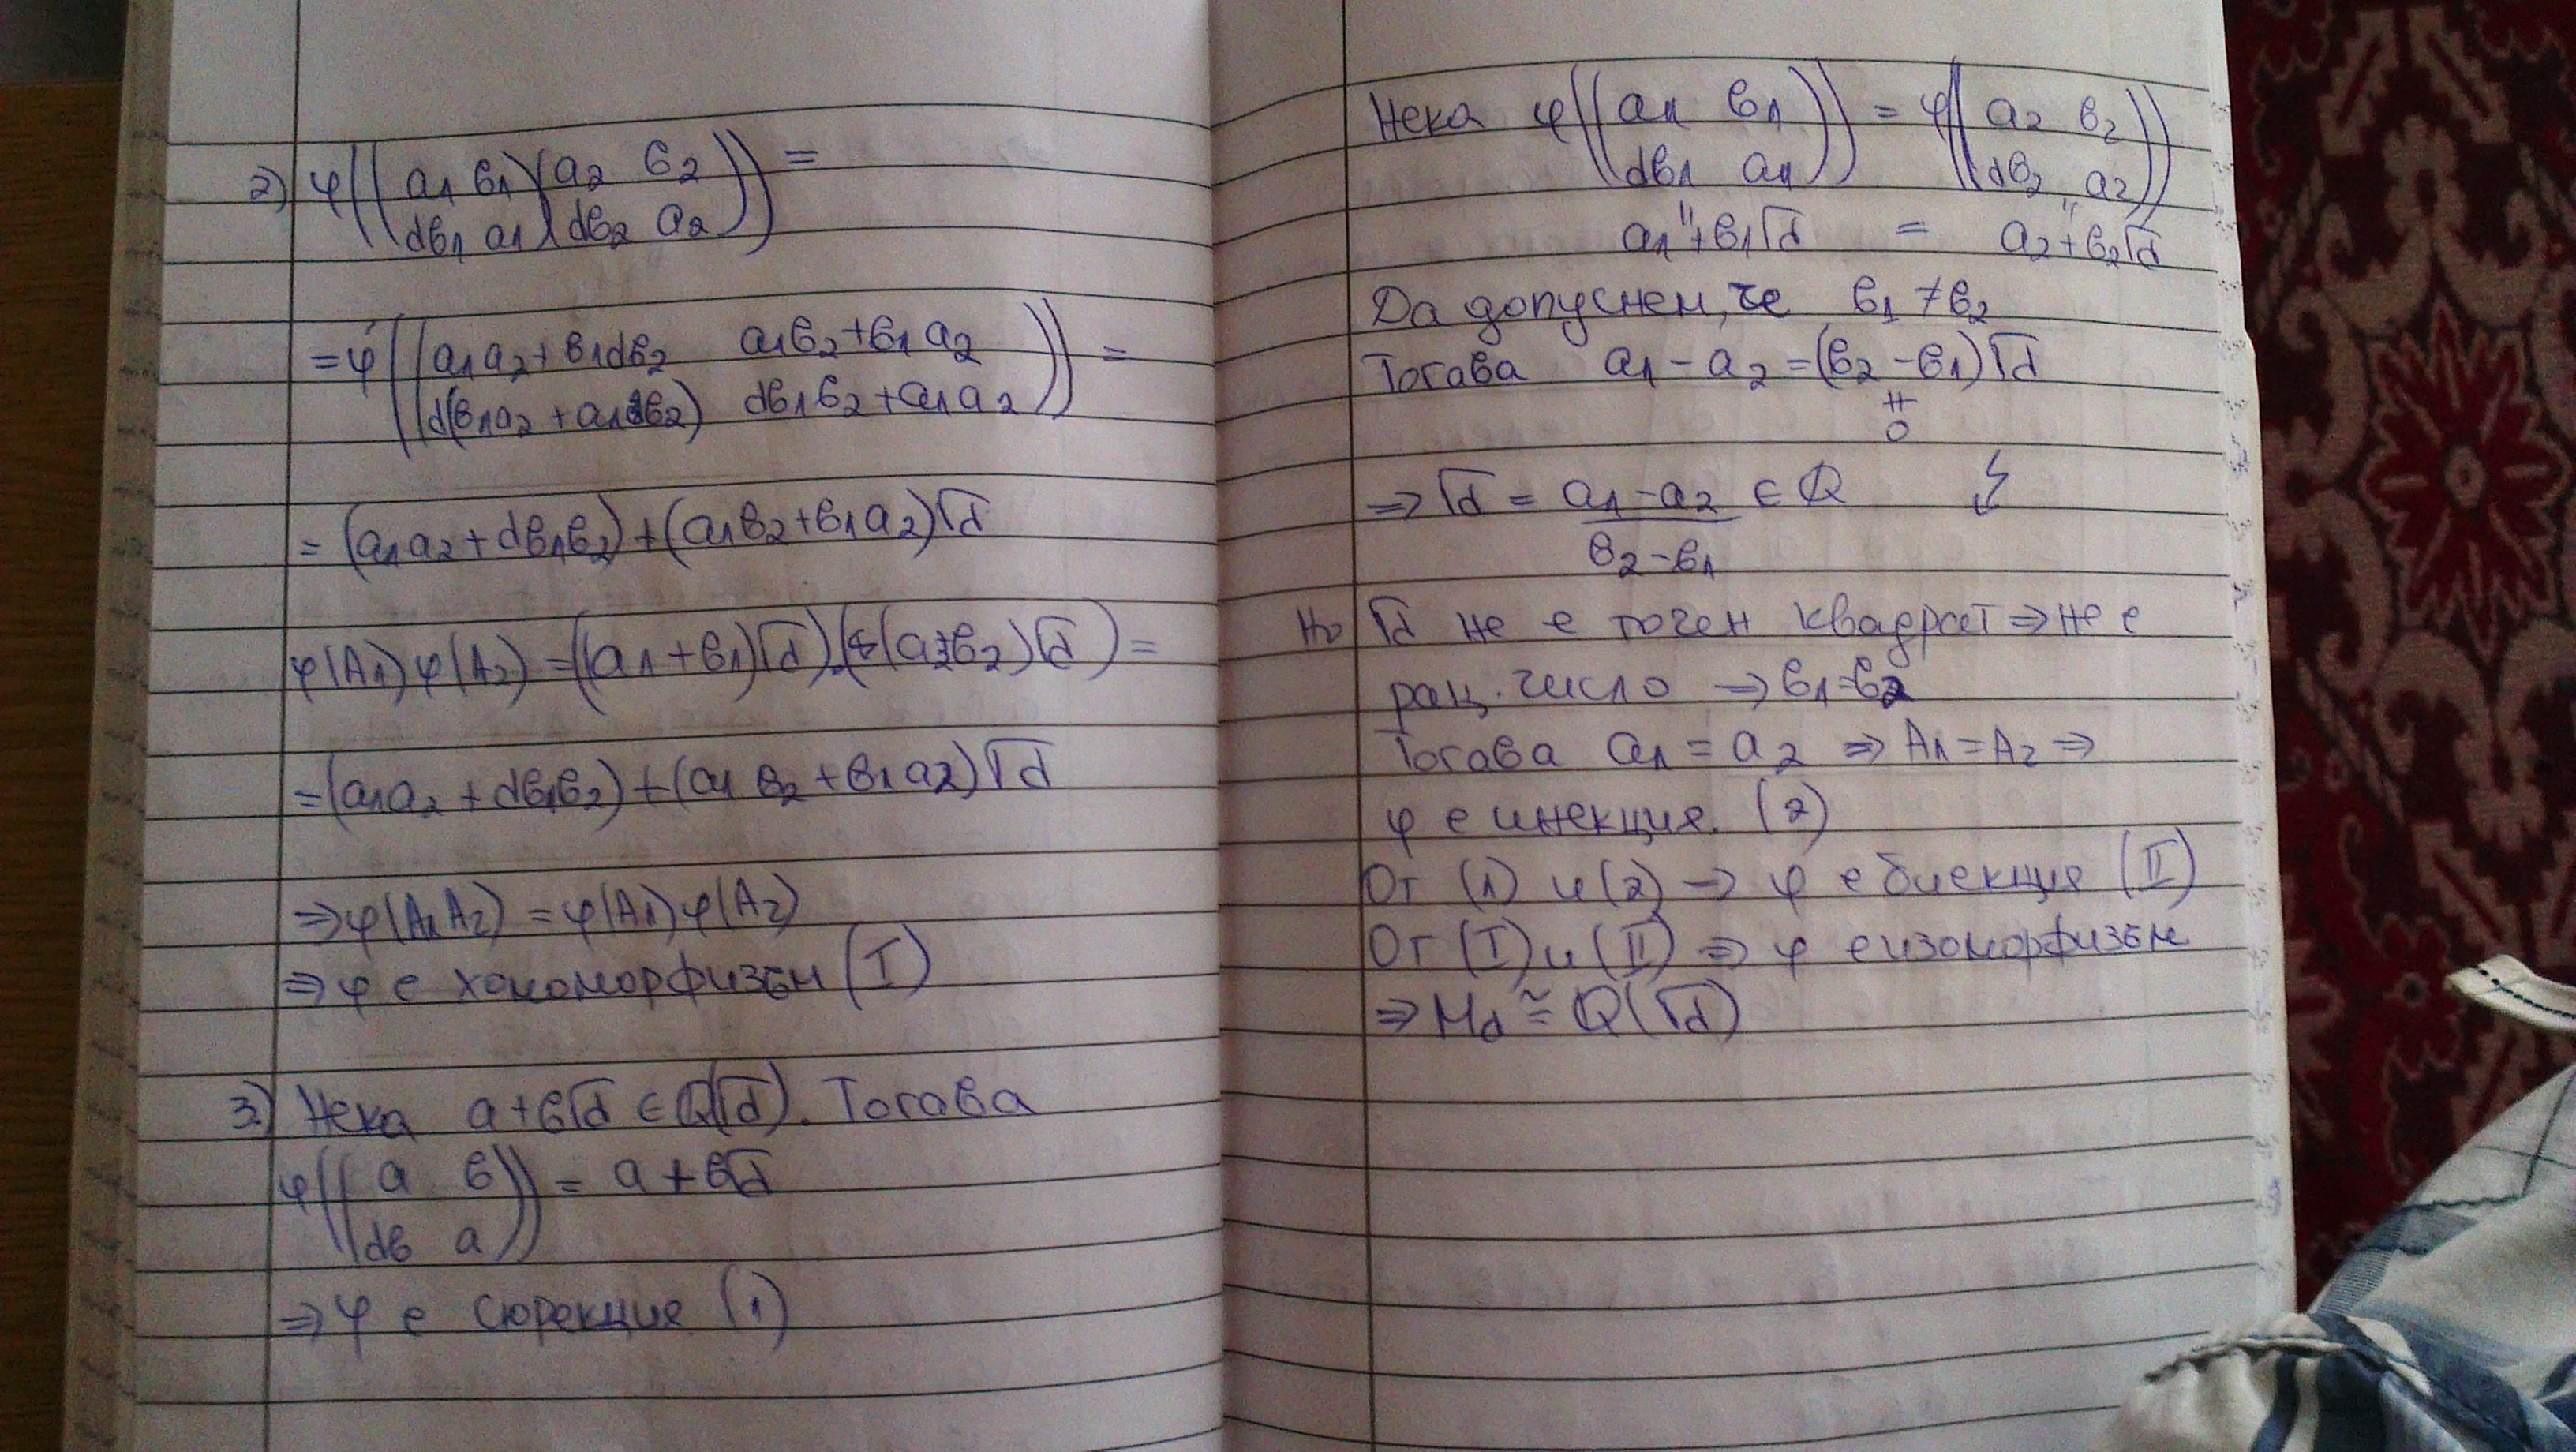 2) φ((a1 в1)(a2 в2)) =
(dв1 a1)(dв2 a2)
= φ((a1a2+в1dв2 a1в2+в1a2)) =
(d(в1a2+a1в2) dв1в2+a1a2)
= (a1a2+dв1в2)+(a1в2+в1a2)√d
φ(A1)φ(A2) = ((a1+в1)√d).((a2+в2)√d) =
= (a1a2+dв1в2)+(a1в2+в1a2)√d
⇒ φ(A1A2) = φ(A1)φ(A2)
⇒ φ е хомоморфизъм (I)
3.) Нека a+в√d ∈ Q(√d). Тогава
φ((a в)) = a+в√d
(dв a)
⇒ φ е сюрекция (1)
Нека φ((a1 в1)) = φ((a2 в2))
(dв1 a1) (dв2 a2)
" "
a1+в1√d = a2+в2√d
Да допуснем, че в1 ≠ в2
Тогава a1-a2 = (в2-в1)√d
≠
0
⇒ √d = a1-a2 ∈ Q ↯
в2-в1
Но √d не е точен квадрат ⇒ не е
рац. число ⇒ в1=в2
Тогава a1=a2 ⇒ A1=A2 ⇒
φ е инекция. (2)
От (1) и (2) ⇒ φ е биекция (II)
От (I) и (II) ⇒ φ е изоморфизъм
⇒ Md ≅ Q(√d)